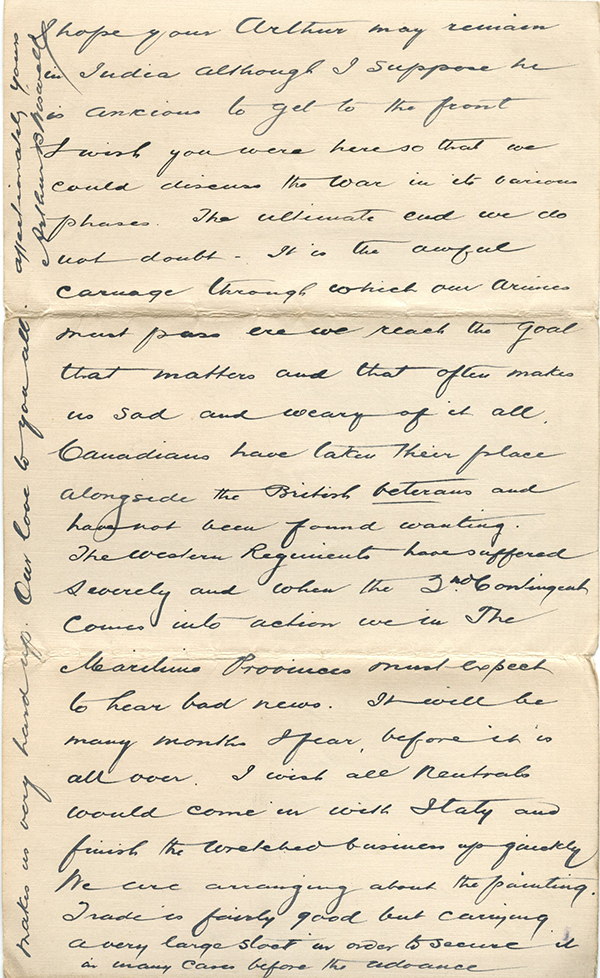 I hope your Arthur may remain
in India although I suppose he
is anxious to get to the front
I wish you were here so that we
could discuss the War in its various
phases. The ultimate end we do
not doubt - It is the awful
carnage through which our Armies
must pass ere we reach the goal
that matters and that often makes
us sad and weary of it all.
Canadians have taken their place
alongside the British veterans and
have not been found wanting.
The Western Regiments have suffered
severely and when the 2nd Contingent
comes into action we in The
Maritime Provinces must expect
to hear bad news. It will be
many months I fear, before it is
all over. I wish all Neutrals
would come in with Italy and
finish the wretched business up quickly
We are arranging about the painting.
Trade is fairly good but carrying
a very large stock in order to secure it
in many cases before the advance
makes us very hard up. Our love to you all. affectionately yours
Arthur B